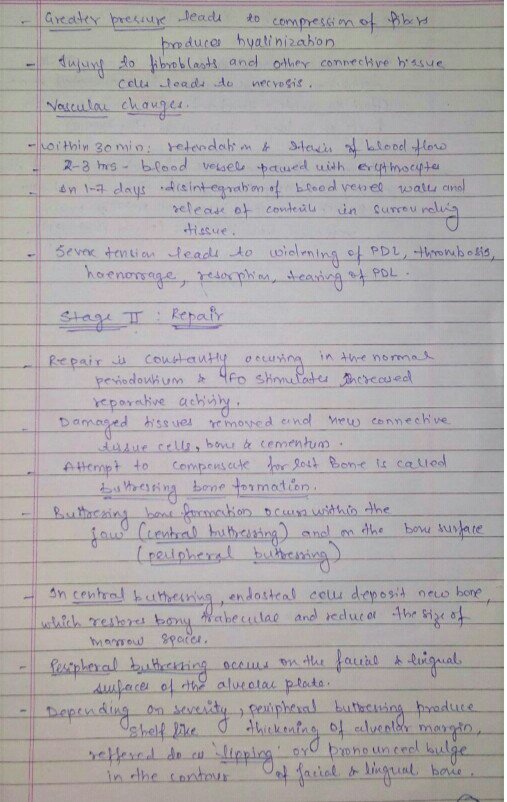 - Greater pressure leads to compression of fibers
produces hyalinization
- Injury to fibroblasts and other connective tissue
cells leads to necrosis.
Vascular changes.
- Within 30 min: retendation & stasis of blood flow
- 2-3 hrs - blood vessels paved with erythrocytes
- In 1-7 days - disintegration of blood vessel walls and
release of contents in surrounding
tissue.
- Severe tension leads to widening of PDL, thrombosis,
haenorrage, resorption, tearing of PDL.
Stage II : Repair
- Repair is constantly occuring in the normal
periodontium & TFO stimulates increased
reparative activity.
- Damaged tissues removed and new connective
tissue cells, bone & cementum.
- Attempt to compensate for lost Bone is called
buttressing bone formation.
- Buttressing bone formation occurs within the
jaw (central buttressing) and on the bone surface
(peripheral buttressing)
- In central buttressing, endosteal cells deposit new bone,
which restores bony trabeculae and reduces the size of
marrow spaces.
- Peripheral buttressing occurs on the facial & lingual
surfaces of the alveolar plate.
- Depending on severity, peripheral buttressing produce
shelf like thickening of alveolar margin,
reffered to as 'lipping' or pronounced bulge
in the contour of facial & lingual bone.